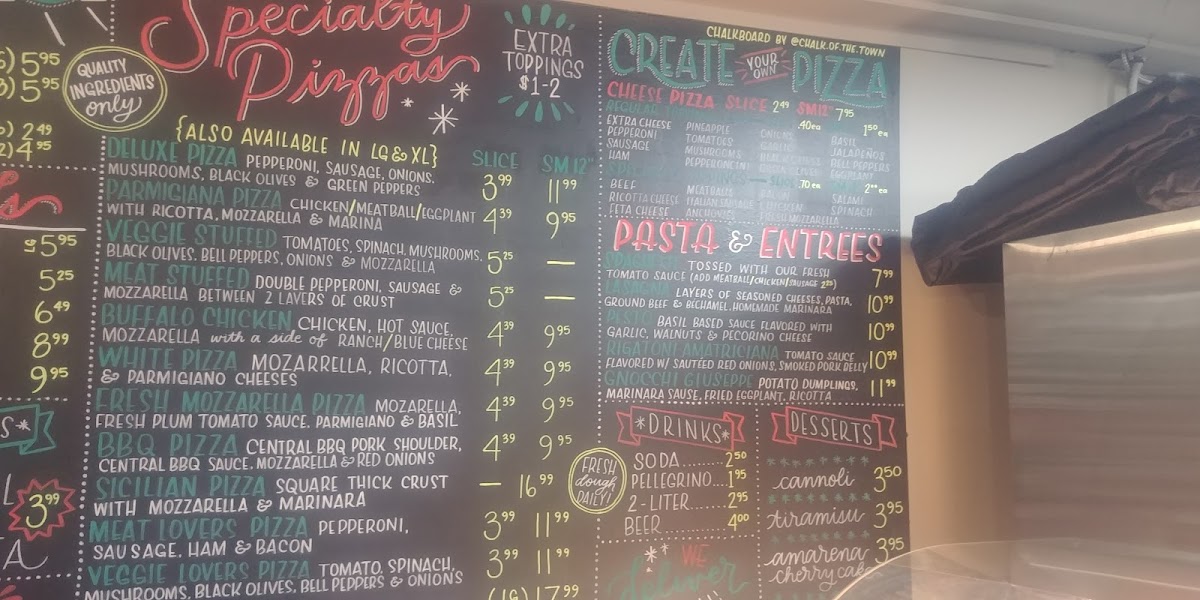 5 95
5 95
2 49
4 95
QUALITY
INGREDIENTS
only
$5 95
5 25
6 49
8 99
9 95
S*
3 99
A
Specialty
Pizzas
{ALSO AVAILABLE IN LG & XL}
EXTRA
TOPPINGS
$1-2
SLICE SM 12"
DELUXE PIZZA PEPPERONI, SAUSAGE, ONIONS,
MUSHROOMS, BLACK OLIVES & GREEN PEPPERS 3 99 11 99
PARMIGIANA PIZZA CHICKEN/MEATBALL/EGGPLANT
WITH RICOTTA, MOZZARELLA & MARINA 4 39 9 95
VEGGIE STUFFED TOMATOES, SPINACH, MUSHROOMS,
BLACK OLIVES, BELL PEPPERS, ONIONS & MOZZARELLA 5 25 —
MEAT STUFFED DOUBLE PEPPERONI, SAUSAGE &
MOZZARELLA BETWEEN 2 LAYERS OF CRUST 5 25 —
BUFFALO CHICKEN CHICKEN, HOT SAUCE,
MOZZARELLA with a side of RANCH/BLUE CHEESE 4 39 9 95
WHITE PIZZA MOZARRELLA, RICOTTA,
& PARMIGIANO CHEESES 4 39 9 95
FRESH MOZZARELLA PIZZA MOZARELLA,
FRESH PLUM TOMATO SAUCE, PARMIGIANO & BASIL 4 39 9 95
BBQ PIZZA CENTRAL BBQ PORK SHOULDER,
CENTRAL BBQ SAUCE, MOZZARELLA & RED ONIONS 4 39 9 95
SICILIAN PIZZA SQUARE THICK CRUST
WITH MOZZARELLA & MARINARA — 16 99
MEAT LOVERS PIZZA PEPPERONI,
SAUSAGE, HAM & BACON 3 99 11 99
VEGGIE LOVERS PIZZA TOMATO, SPINACH,
MUSHROOMS, BLACK OLIVES, BELL PEPPERS & ONIONS 3 99 11 99
(LG) 17 99
CHALKBOARD BY @CHALK.OF.THE.TOWN
CREATE YOUR OWN PIZZA
CHEESE PIZZA SLICE 2 49 SM 12" 7 95
REGULAR .40ea 1 50 ea
EXTRA CHEESE PINEAPPLE ONIONS BASIL
PEPPERONI TOMATOES GARLIC JALAPEÑOS
SAUSAGE MUSHROOMS BLACK OLIVES BELL PEPPERS
HAM PEPPERONCINI EGGPLANT
.70 ea 2 00 ea
BEEF MEATBALLS BACON SALAMI
RICOTTA CHEESE ITALIAN SAUSAGE CHICKEN SPINACH
FETA CHEESE ANCHOVIES FRESH MOZZARELLA
PASTA & ENTREES
SPAGHETTI TOSSED WITH OUR FRESH
TOMATO SAUCE (ADD MEATBALL/CHICKEN/SAUSAGE 2 25) 7 99
LASAGNA LAYERS OF SEASONED CHEESES, PASTA,
GROUND BEEF & BECHAMEL, HOMEMADE MARINARA 10 99
PESTO BASIL BASED SAUCE FLAVORED WITH
GARLIC, WALNUTS & PECORINO CHEESE 10 99
RIGATONI AMATRICIANA TOMATO SAUCE
FLAVORED W/ SAUTÉED RED ONIONS, SMOKED PORK BELLY 10 99
GNOCCHI GIUSEPPE POTATO DUMPLINGS,
MARINARA SAUSE, FRIED EGGPLANT, RICOTTA 11 99
FRESH
dough
DAILY!
*DRINKS*
SODA........2 50
PELLEGRINO....1 95
2-LITER........2 95
BEER........4 00
WE
deliver
DESSERTS
cannoli 3 50
tiramisu 3 95
amarena
cherry cake 3 95